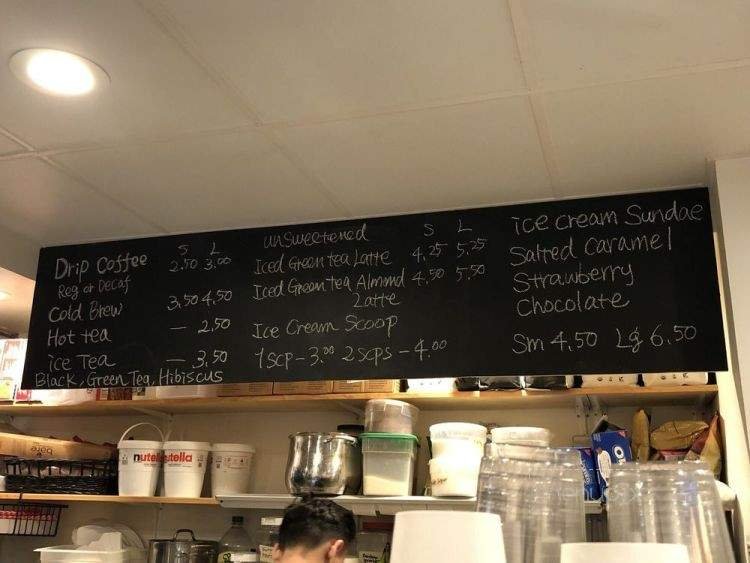 S L
Drip Coffee 2.50 3.00
Reg or Decaf
Cold Brew 3.50 4.50
Hot tea — 2.50
ice Tea — 3.50
Black, Green Tea, Hibiscus
unsweetened S L
Iced Green tea Latte 4.25 5.25
Iced Green tea Almond 4.50 5.50
Latte
Ice Cream Scoop
1 scp - 3.00 2 scps - 4.00
ice cream Sundae
Salted Caramel
Strawberry
Chocolate
Sm 4.50 Lg 6.50
nutella
nutella
bare